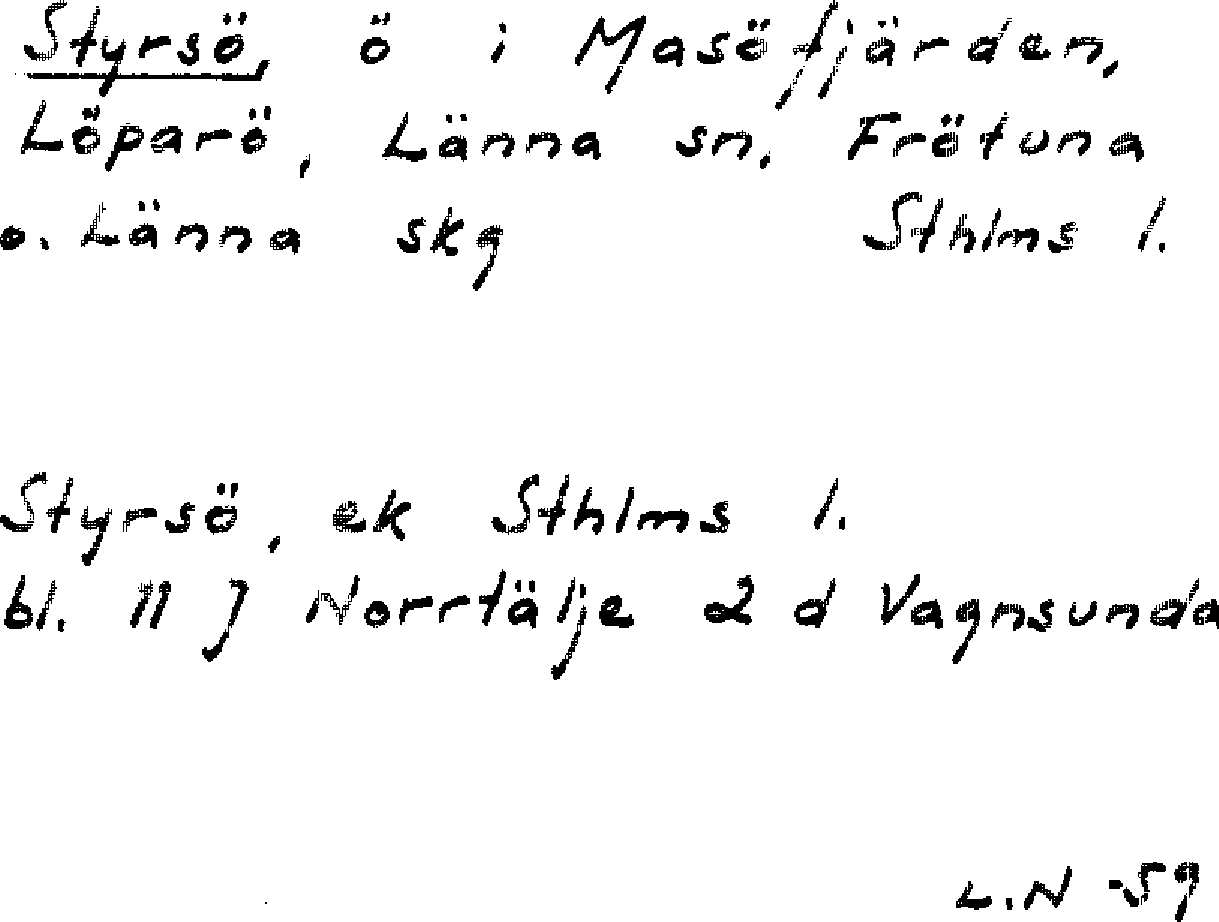 Styrsö, ö i Masöfjärden,
Löparö, Länna sn, Frötuna
o. Länna skg Sthlms l.
Styrsö, ek Sthlms l.
bl. 11 J Norrtälje 2 d Vagnsunda
L.N -59